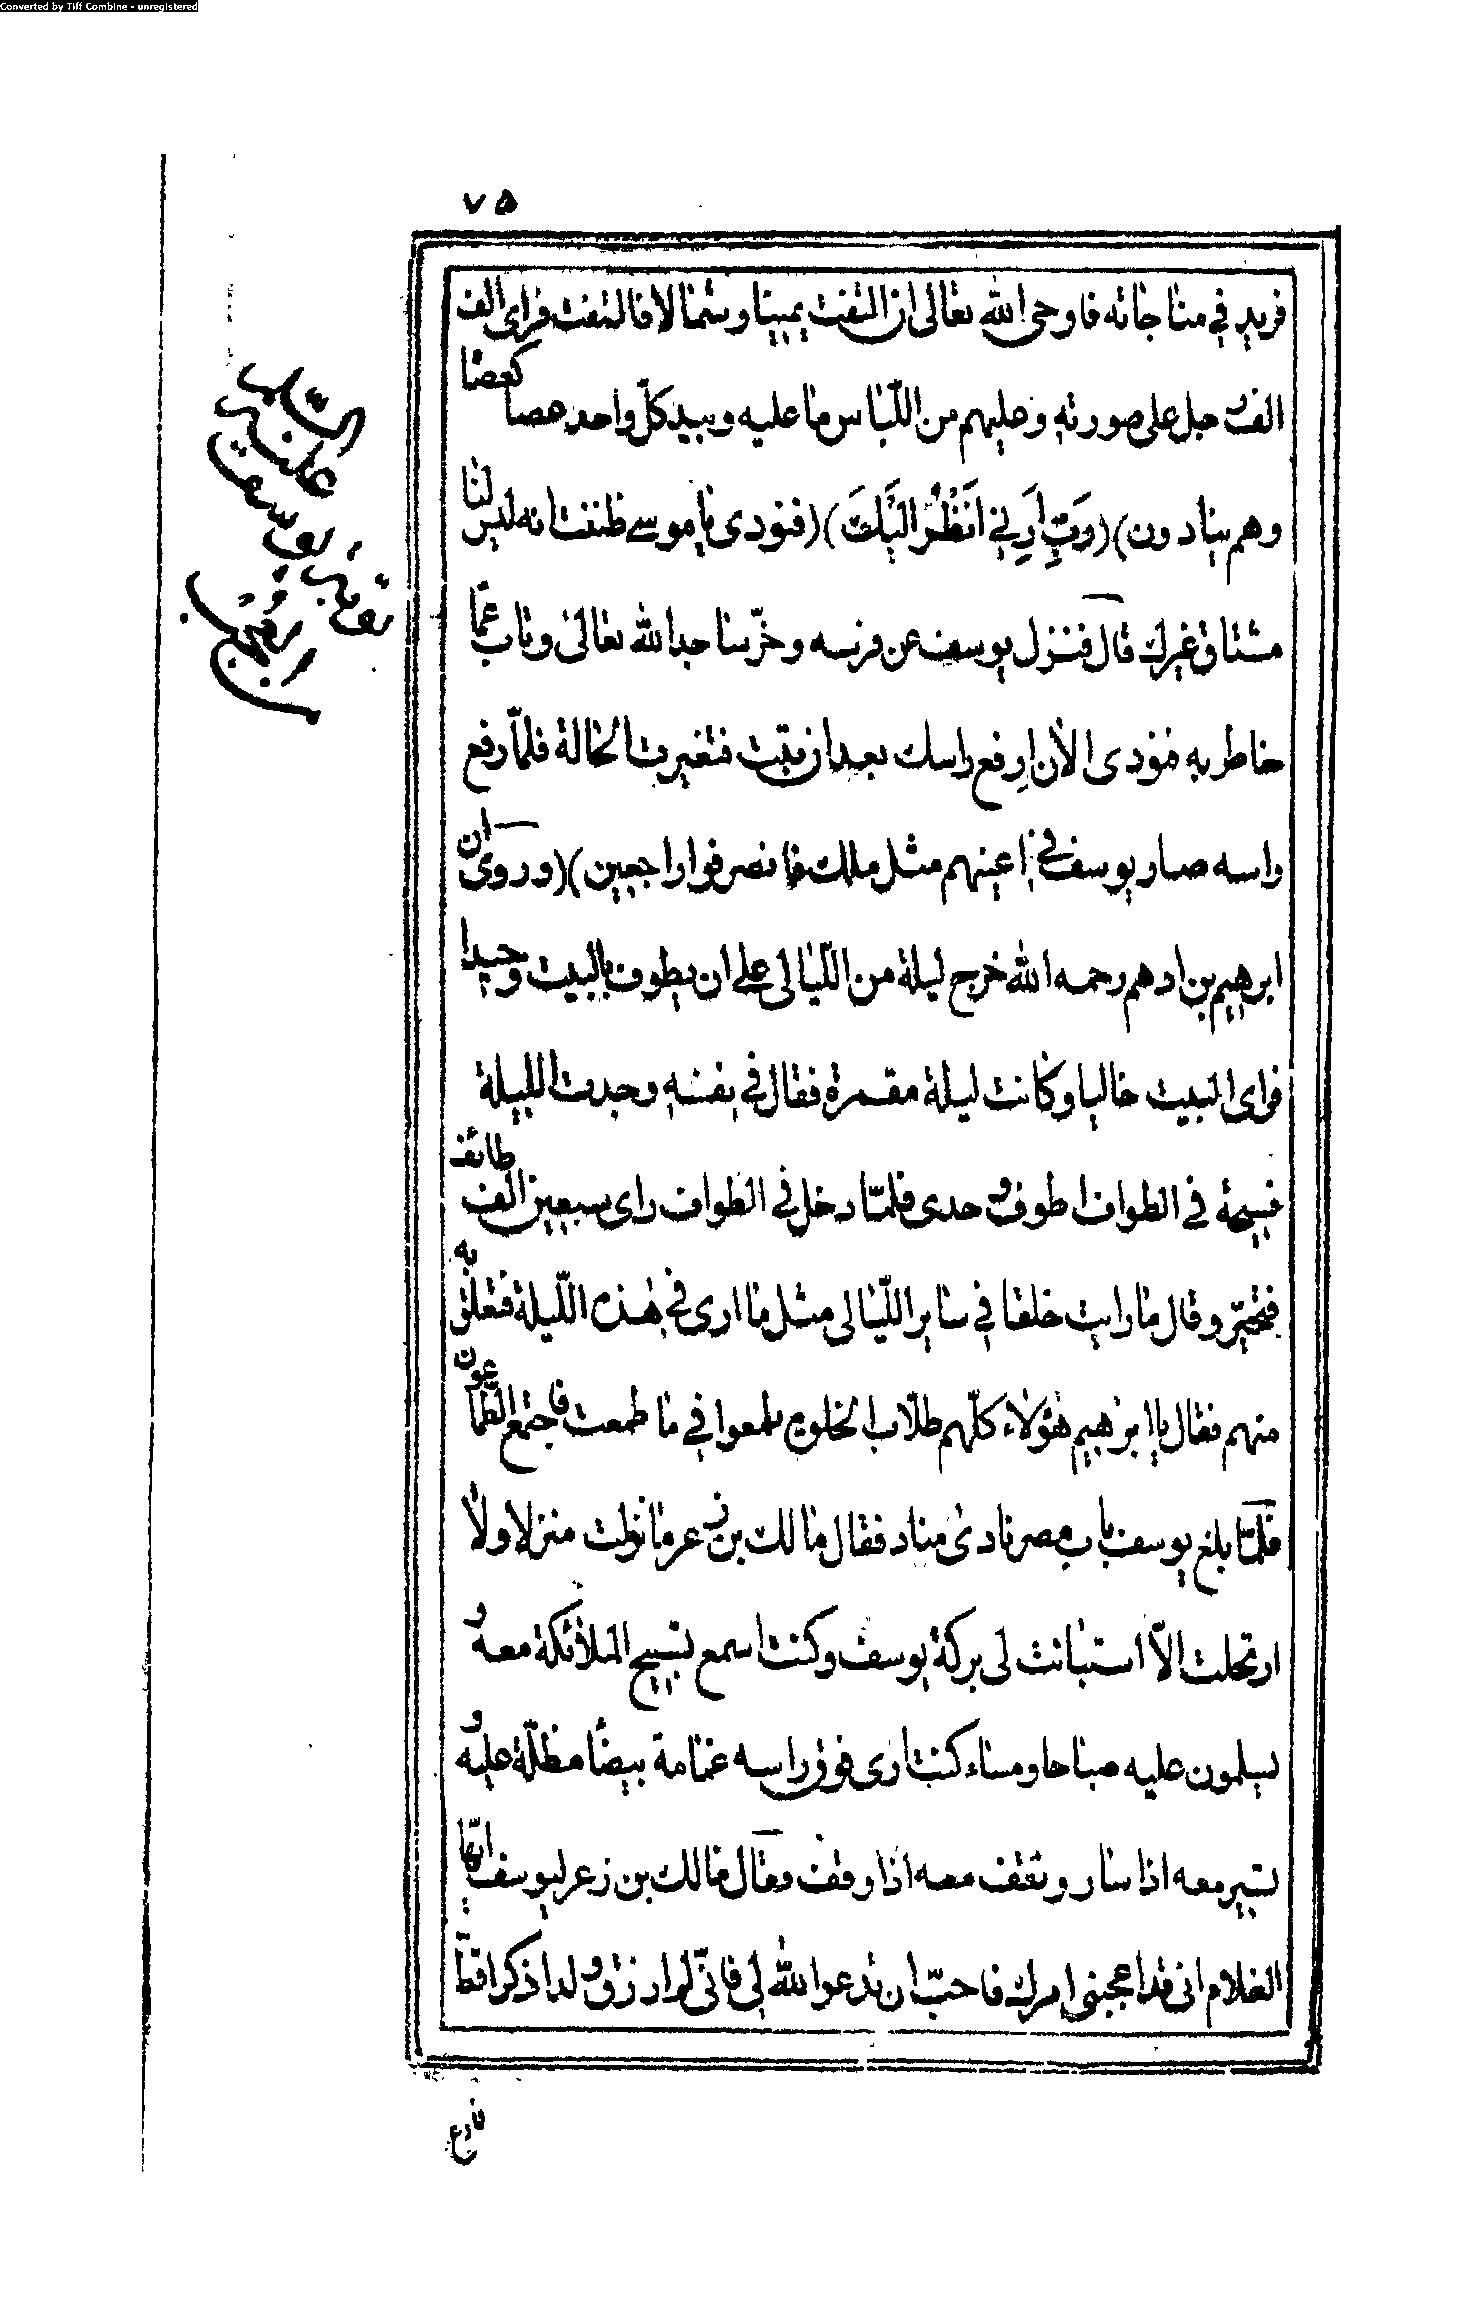 Converted by Tiff Combine - unregistered
٧٥
فريد في مناجاته فاوحى الله تعالى ان التفت يمينا وشمالا فالتفت فراى الف
الف جبل على صورته وعليهم من اللّباس ما عليه وبيد كلّ واحد عصا كعصا
وهم ينادون)(رَبِّ اَرِنِي اَنْظُرْ اِلَيْكَ)(فنودى يا موسى ظننت انه ليس لنا
مشتاق غيرك قال فنزل يوسف عن فرسه وخرّ ساجدا لله تعالى وتاب عمّا
خاطر به فنودى الان ارفع راسك بعد ان تبت فتغيرت الحالة فلمّا رفع
راسه صار يوسف في اعينهم مثل ملك فانصرفوا راجعين)(وروى ان
ابرهيم بن ادهم رحمه الله خرج ليلة من اللّيالى على ان يطوف بالبيت وحيدا
فراى البيت خاليا وكانت ليلة مقمرة فقال في نفسه وجدت الليلة
فسحة في الطواف اطوف وحدى فلمّا دخل في الطواف راى سبعين الف طائف
فتحيّر وقال ما رايت خلقا في ساير اللّيالى مثل ما ارى في هذه اللّيلة فتعلق به
منهم فقال يا ابرهيم هؤلاء كلّهم طلّاب الخلوة طمعوا في ما طمعت فاجتمع الطّماعون
فلمّا بلغ يوسف باب مصر نادى مناد فقال مالك بن زعر ما نزلت منزلا ولا
ارتحلت الاّ استبانت لى بركة يوسف وكنت اسمع تسبيح الملائكة معه و
يسلمون عليه صباحا ومساء كنت ارى فوق راسه غمامة بيضا مظلّة عليه و
تسير معه اذا سار وتقف معه اذا وقف وقال مالك بن زعر ليوسف ايها
الغلام انى قد اعجبنى امرك فاحبّ ان تدعوا لله لى فانّى لم ارزق ولدا ذكرا قطّ
فادع
توبة يوسف
عليه
السلام